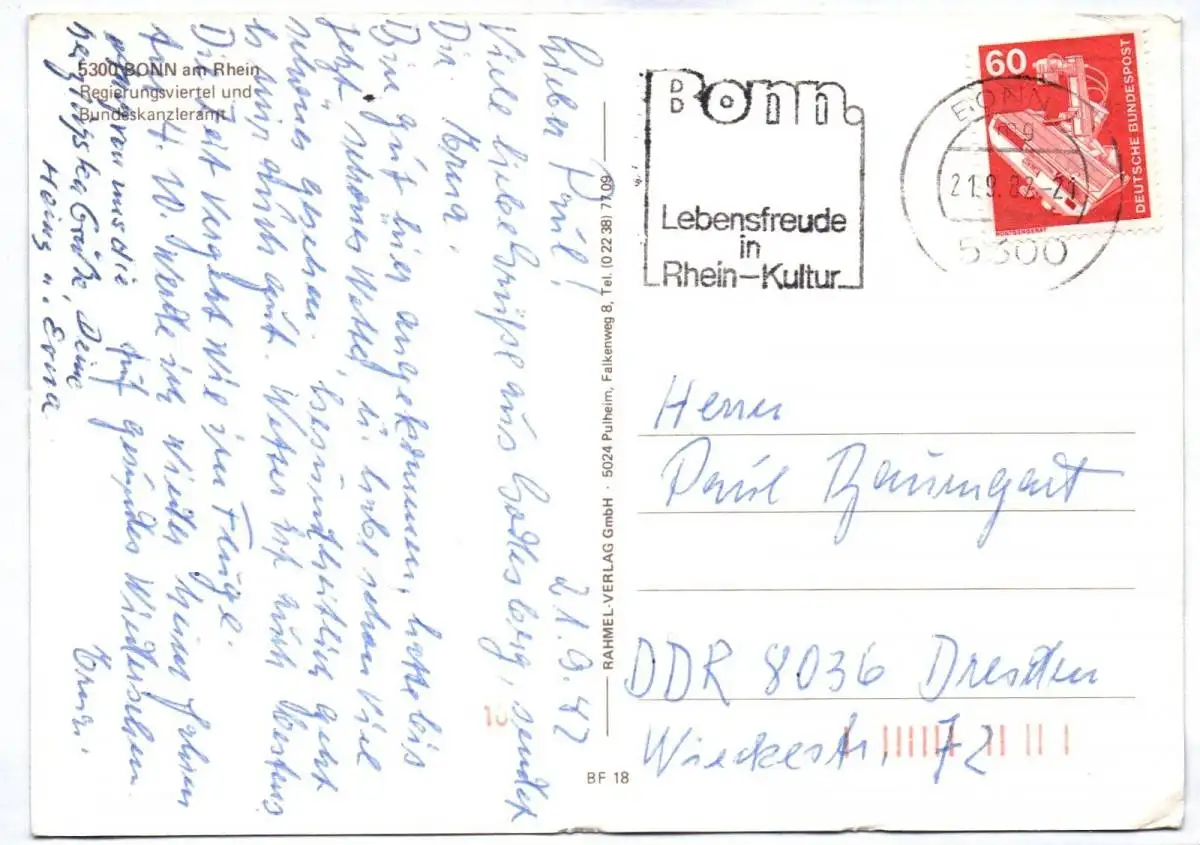 5300 BONN am Rhein
Regierungsviertel und
Bundeskanzleramt
Lieber Paul! 21.9.82
Viele liebe Grüße aus Godesberg, sendet
Dir Erna.
Bin gut hier angekommen, hatte bis
jetzt schönes Wetter, u. habe schon viel
schönes gesehen. Gesundheitlich geht
es mir auch gut. Wetter ist auch bestens
Die Zeit vergeht wie im Fluge.
Am 4. 10. werde ich wieder heim fahren
Auf gesundes Wiedersehen
Erna.
uns die
herzlichste Grüße Deine
Heinz u. Erna
RAHMEL-VERLAG GmbH · 5024 Pulheim, Falkenweg 8, Tel. (0 22 38) 7 109
BF 18
Bonn.
Lebensfreude
in
Rhein-Kultur
BONN
mg
21.9.82-21
5300
60
DEUTSCHE BUNDESPOST
RÖNTGENGERÄT
Herrn
Paul Baumgart
DDR 8036 Dresden
Wieckestr. 72